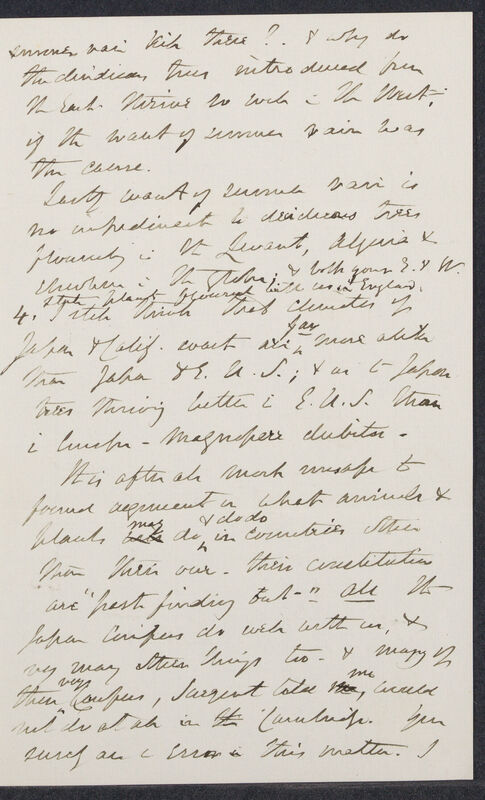 summer rain kill them? . & why do
the deciduous trees introduced from
the East thrive so well in the West;
if the want of summer rain was
the cause.
Lastly want of summer rain is
no impediment to deciduous trees
flourishing in the Levant, Algeria &
elsewhere in the globe; & both your E. & W.
state plants flourish with us in England.
4. I still think that climates of
Japan & Calif. coast are far more alike
than Japan & E. U.S.; & as to Japan
trees thriving better in E.U.S. than
in Europe – magnopere dubito –
It is after all most unsafe to
found argument on what animals &
plants may do, & do do in countries other
than their own – their constitutions
are "past finding out –" All the
Japan Conifers do well with us, &
very many other things too – & many of
these very Conifers, Sargent told me, would
not do at all in Cambridge. You
surely are in error in this matter. I